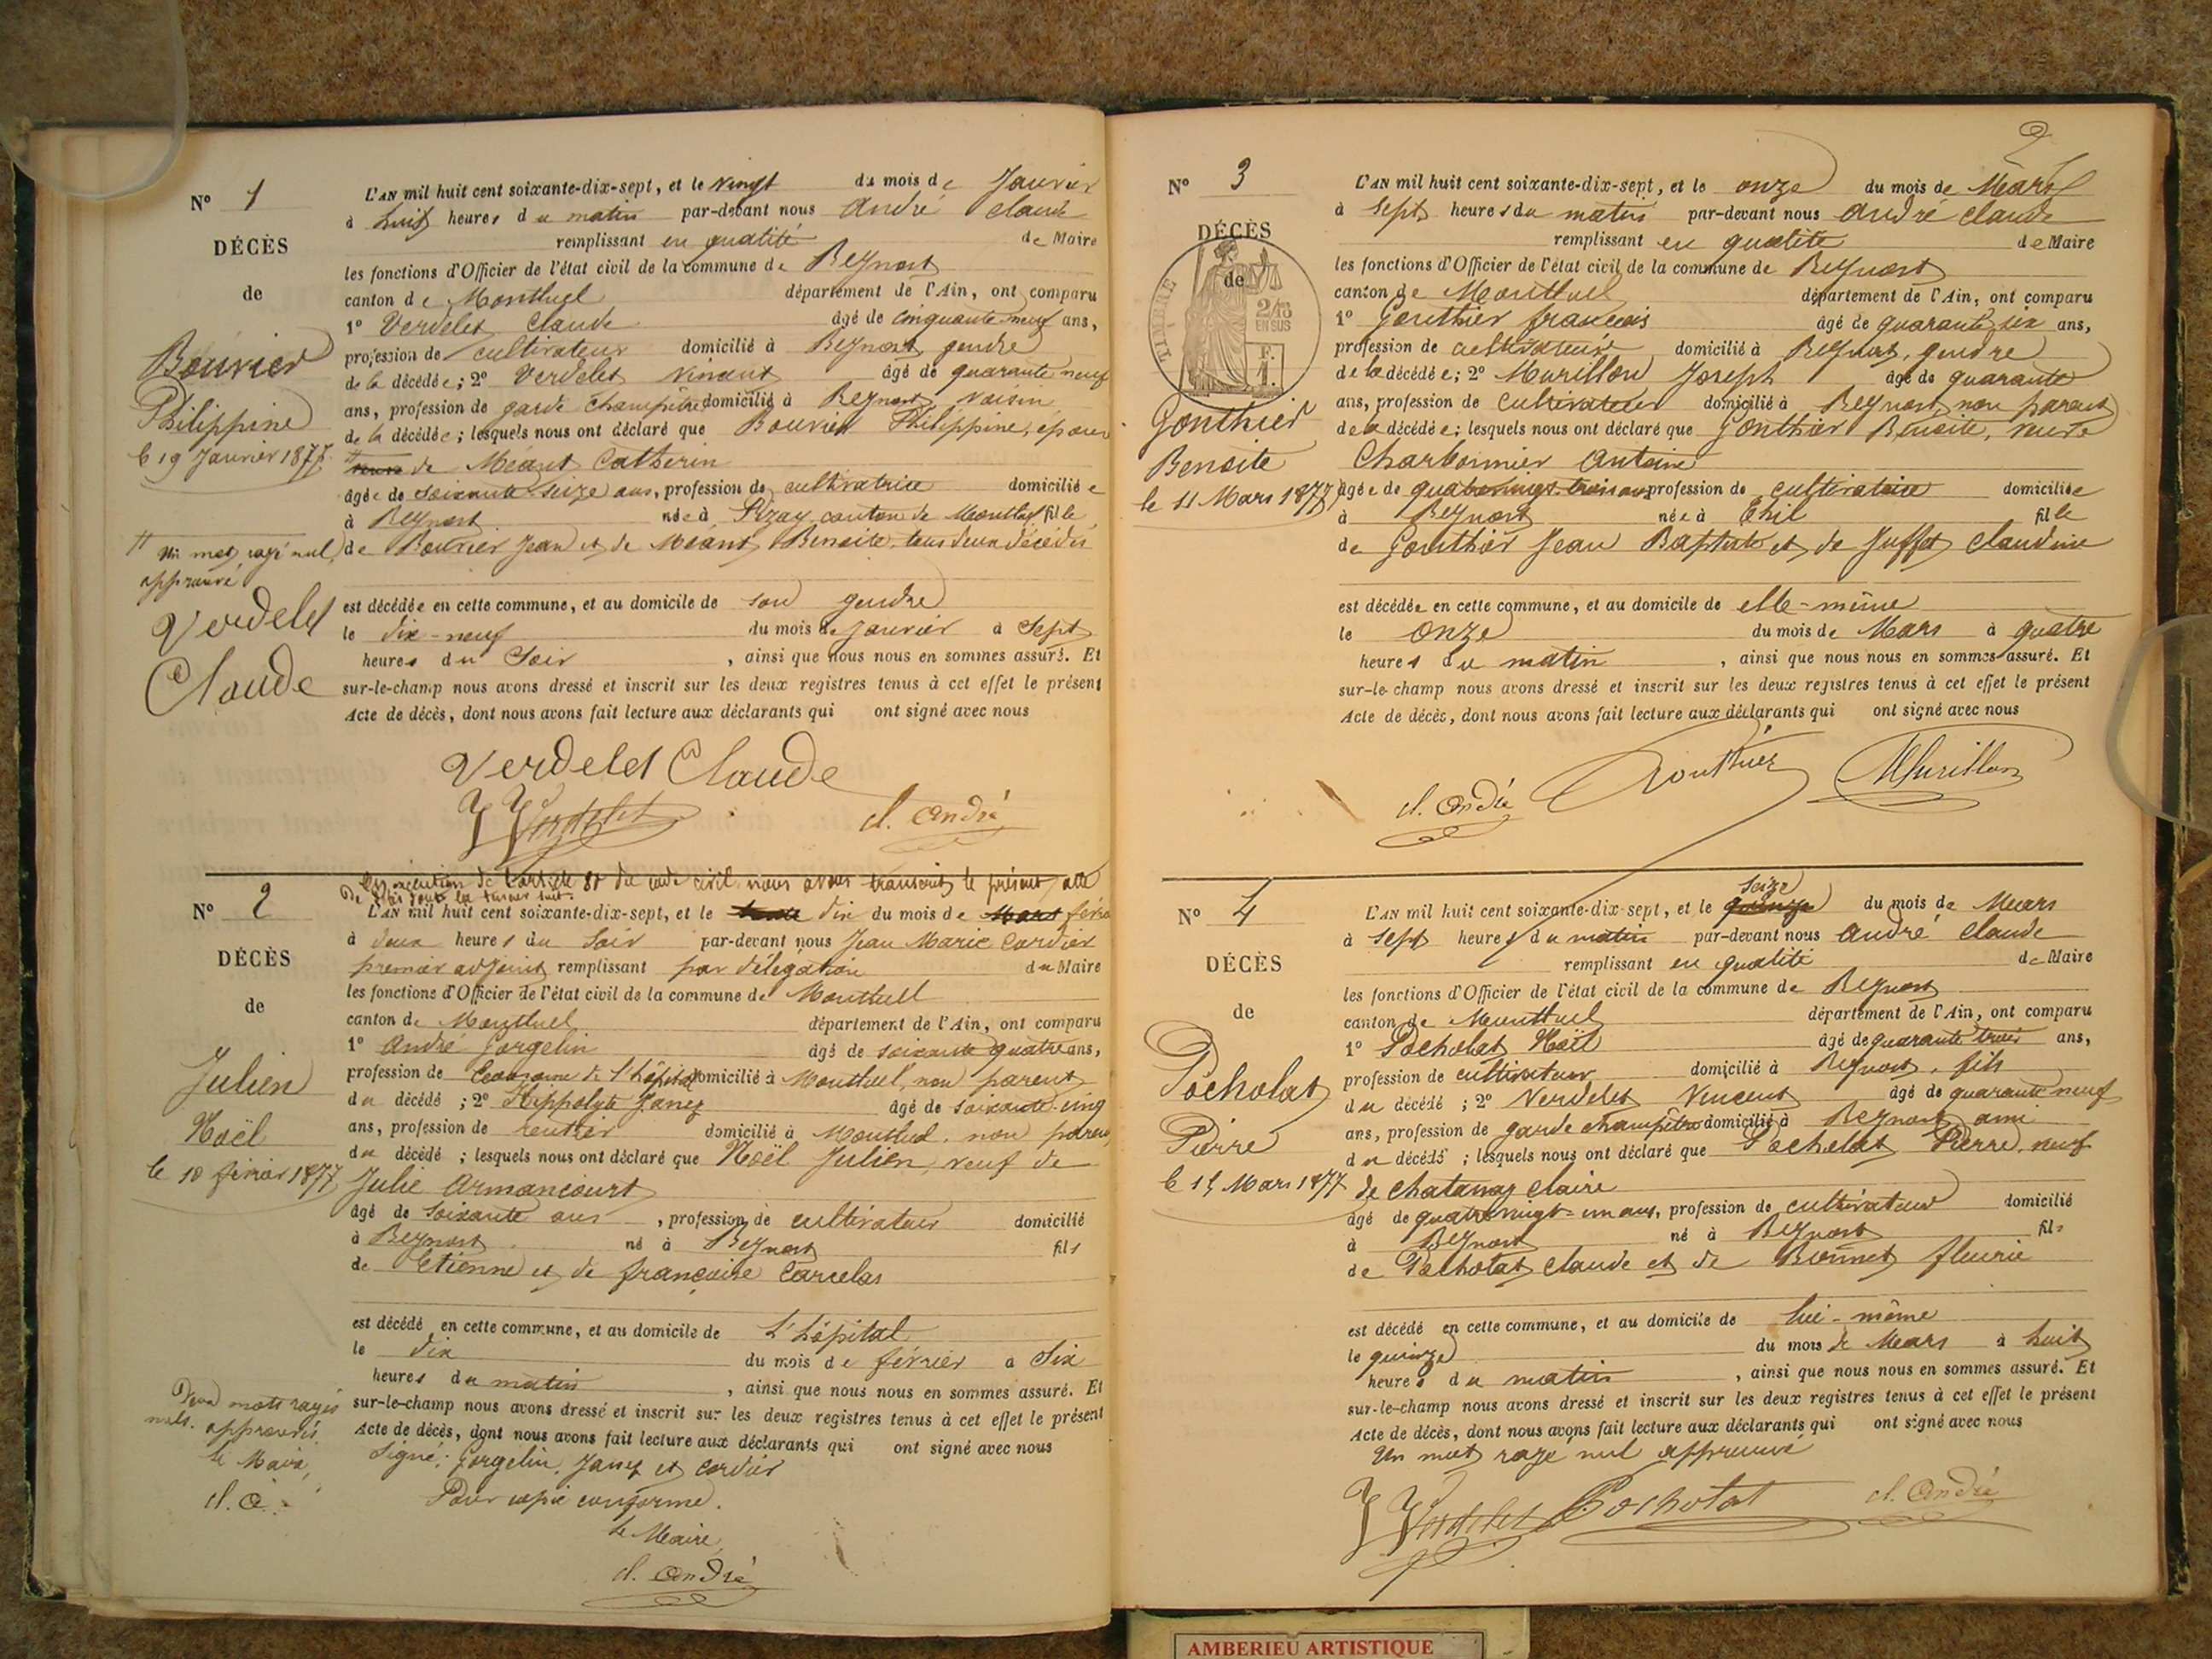 Nº 1
DÉCÈS
de
Bouvier
Philippine
le 19 Janvier 1877
L'AN mil huit cent soixante-dix-sept, et le vingt du mois de Janvier
à huit heures du matin par-devant nous André Claude
remplissant en qualité de Maire
les fonctions d'Officier de l'état civil de la commune de Beynost
canton de Montluel département de l'Ain, ont comparu
1º Verdelet Claude âgé de cinquante-neuf ans,
profession de cultivateur domicilié à Beynost, gendre
de la décédée; 2º Verdelet Vincent âgé de quarante neuf
ans, profession de garde champêtre domicilié à Beynost voisin
de la décédée; lesquels nous ont déclaré que Bouvier Philippine, épouse
de Méant Catherin
âgée de soixante-seize ans, profession de cultivatrice domiciliée
à Beynost née à Pizay canton de Montluel fille
de Bouvier Jean et de Méant Benoite, tous deux décédés
Un mot rayé nul
approuvé
Verdelet
Claude
est décédée en cette commune, et au domicile de son gendre
le dix-neuf du mois de Janvier à Sept
heures du Soir, ainsi que nous nous en sommes assuré. Et
sur-le-champ nous avons dressé et inscrit sur les deux registres tenus à cet effet le présent
Acte de décès, dont nous avons fait lecture aux déclarants qui ont signé avec nous
Verdelet Claude
V Verdelet cl. André
Nº 2
DÉCÈS
de
Julien
Noël
le 10 février 1877
En exécution de l'article 80 du code civil nous avons transcrit le présent acte
De décès dont la teneur suit.
L'AN mil huit cent soixante-dix-sept, et le dix du mois de Mars févr
à deux heures du Soir par-devant nous Jean Marie Cordier
premier adjoint remplissant par délégation du Maire
les fonctions d'Officier de l'état civil de la commune de Montluel
canton de Montluel département de l'Ain, ont comparu
1º André Gorgelin âgé de soixante quatre ans,
profession de Econome de l'hôpital domicilié à Montluel, non parent
du décédé; 2º Hippolyte Janez âgé de soixante-cinq
ans, profession de rentier domicilié à Montluel, non parent
du décédé; lesquels nous ont déclaré que Noël Julien, veuf de
Julie Armancourt
âgé de soixante ans, profession de cultivateur domicilié
à Beynost né à Beynost fils
de Etienne et de françoise Carcelas
est décédé en cette commune, et au domicile de L'hôpital
le dix du mois de février à Six
heures du matin, ainsi que nous nous en sommes assuré. Et
sur-le-champ nous avons dressé et inscrit sur les deux registres tenus à cet effet le présent
Acte de décès, dont nous avons fait lecture aux déclarants qui ont signé avec nous
Signé: Gorgelin, Janez et Cordier
Pour copie conforme.
le Maire,
cl. André
Deux mots rayés
nuls. approuvés.
le Maire,
cl. A.
2
Nº 3
DÉCÈS
de
TIMBRE
2/10
EN SUS
F.
1.
Gonthier
Benoite
le 11 Mars 1877
L'AN mil huit cent soixante-dix-sept, et le onze du mois de Mars
à sept heures du matin par-devant nous André Claude
remplissant en qualité de Maire
les fonctions d'Officier de l'état civil de la commune de Beynost
canton de Montluel département de l'Ain, ont comparu
1º Gonthier françois âgé de quarante six ans,
profession de cultivateur domicilié à Beynost, gendre
de la décédée; 2º Murillon Joseph âgé de quarante
ans, profession de cultivateur domicilié à Beynost, non parent
de la décédée; lesquels nous ont déclaré que Gonthier Benoite, veuve
Charbonnier Antoine
âgée de quatre-vingt-trois ans profession de cultivatrice domiciliée
à Beynost née à Thil fille
de Gonthier Jean Baptiste et de Juffet Claudine
est décédée en cette commune, et au domicile de elle-même
le onze du mois de Mars à quatre
heures du matin, ainsi que nous nous en sommes assuré. Et
sur-le-champ nous avons dressé et inscrit sur les deux registres tenus à cet effet le présent
Acte de décès, dont nous avons fait lecture aux déclarants qui ont signé avec nous
cl. André Gonthier Murillon
Nº 4
DÉCÈS
de
Pocholat
Pierre
le 15 Mars 1877
seize
L'AN mil huit cent soixante-dix-sept, et le quinze du mois de Mars
à sept heures du matin par-devant nous André Claude
remplissant en qualité de Maire
les fonctions d'Officier de l'état civil de la commune de Beynost
canton de Montluel département de l'Ain, ont comparu
1º Pocholat Noël âgé de quarante trois ans,
profession de cultivateur domicilié à Beynost, fils
du décédé; 2º Verdelet Vincent âgé de quarante neuf
ans, profession de garde champêtre domicilié à Beynost ami
du décédé; lesquels nous ont déclaré que Pocholat Pierre, veuf
de Chatanay Claire
âgé de quatre vingt-un ans, profession de cultivateur domicilié
à Beynost né à Beynost fils
de Pocholat Claude et de Bonnet fleurie
est décédé en cette commune, et au domicile de lui-même
le quinze du mois de Mars à huit
heures du matin, ainsi que nous nous en sommes assuré. Et
sur-le-champ nous avons dressé et inscrit sur les deux registres tenus à cet effet le présent
Acte de décès, dont nous avons fait lecture aux déclarants qui ont signé avec nous
Un mot rayé nul approuvé
V Verdelet Pocholat cl. André
AMBERIEU ARTISTIQUE